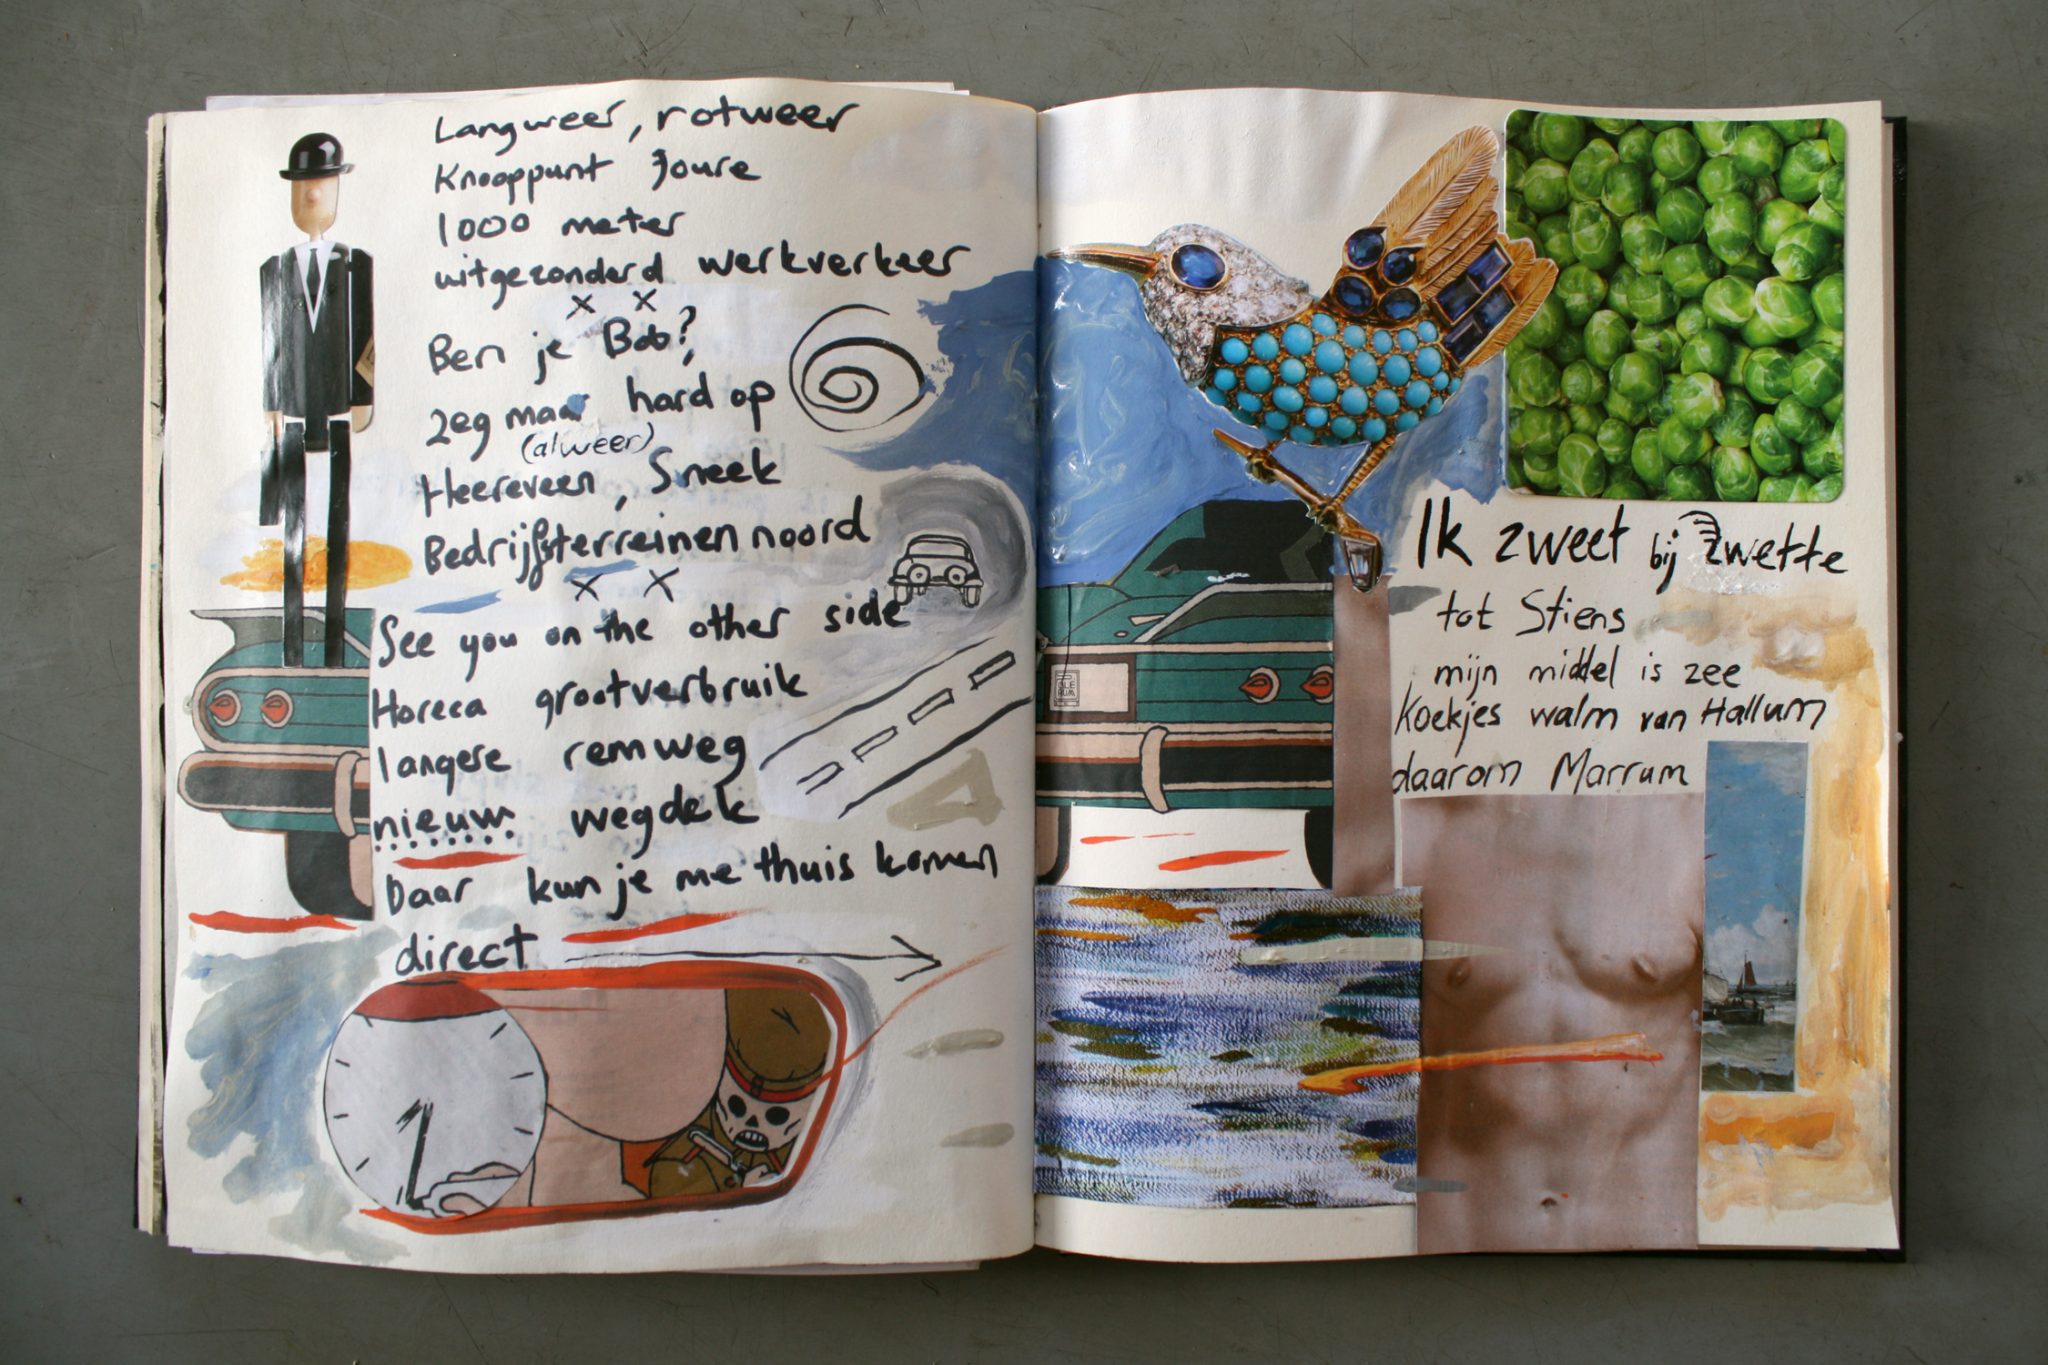 Langweer, rotweer
Knooppunt Joure
1000 meter
uitgezonderd werkverkeer
x x
Ben je Bob?
zeg maar hard op
(alweer)
Heereveen, Sneek
Bedrijfsterreinen noord
x x
See you on the other side
Horeca grootverbruik
langere remweg
nieuw wegdek
Daar kun je me thuis komen
direct
Ik zweet bij Zwette
tot Stiens
mijn middel is zee
Koekjes walm van Hallum
daarom Marrum